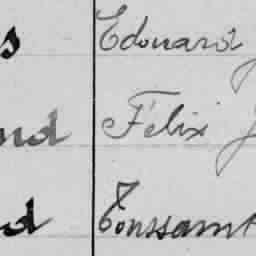 s Edouard J
nd Félix J
d Toussaint